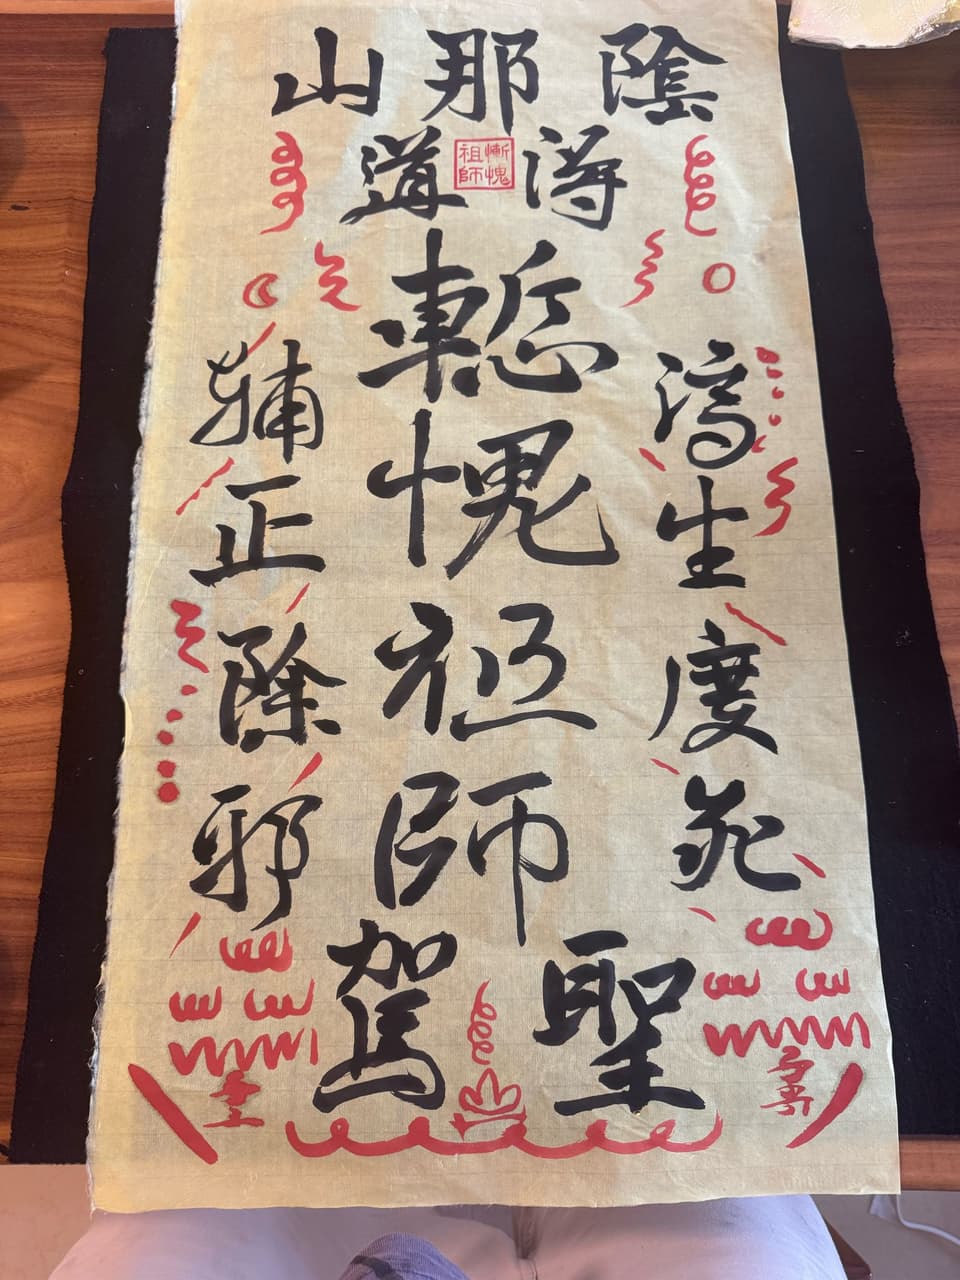 陰那山
得道
慚愧祖師
濟生度死
慙愧祖師
輔正除邪
聖駕